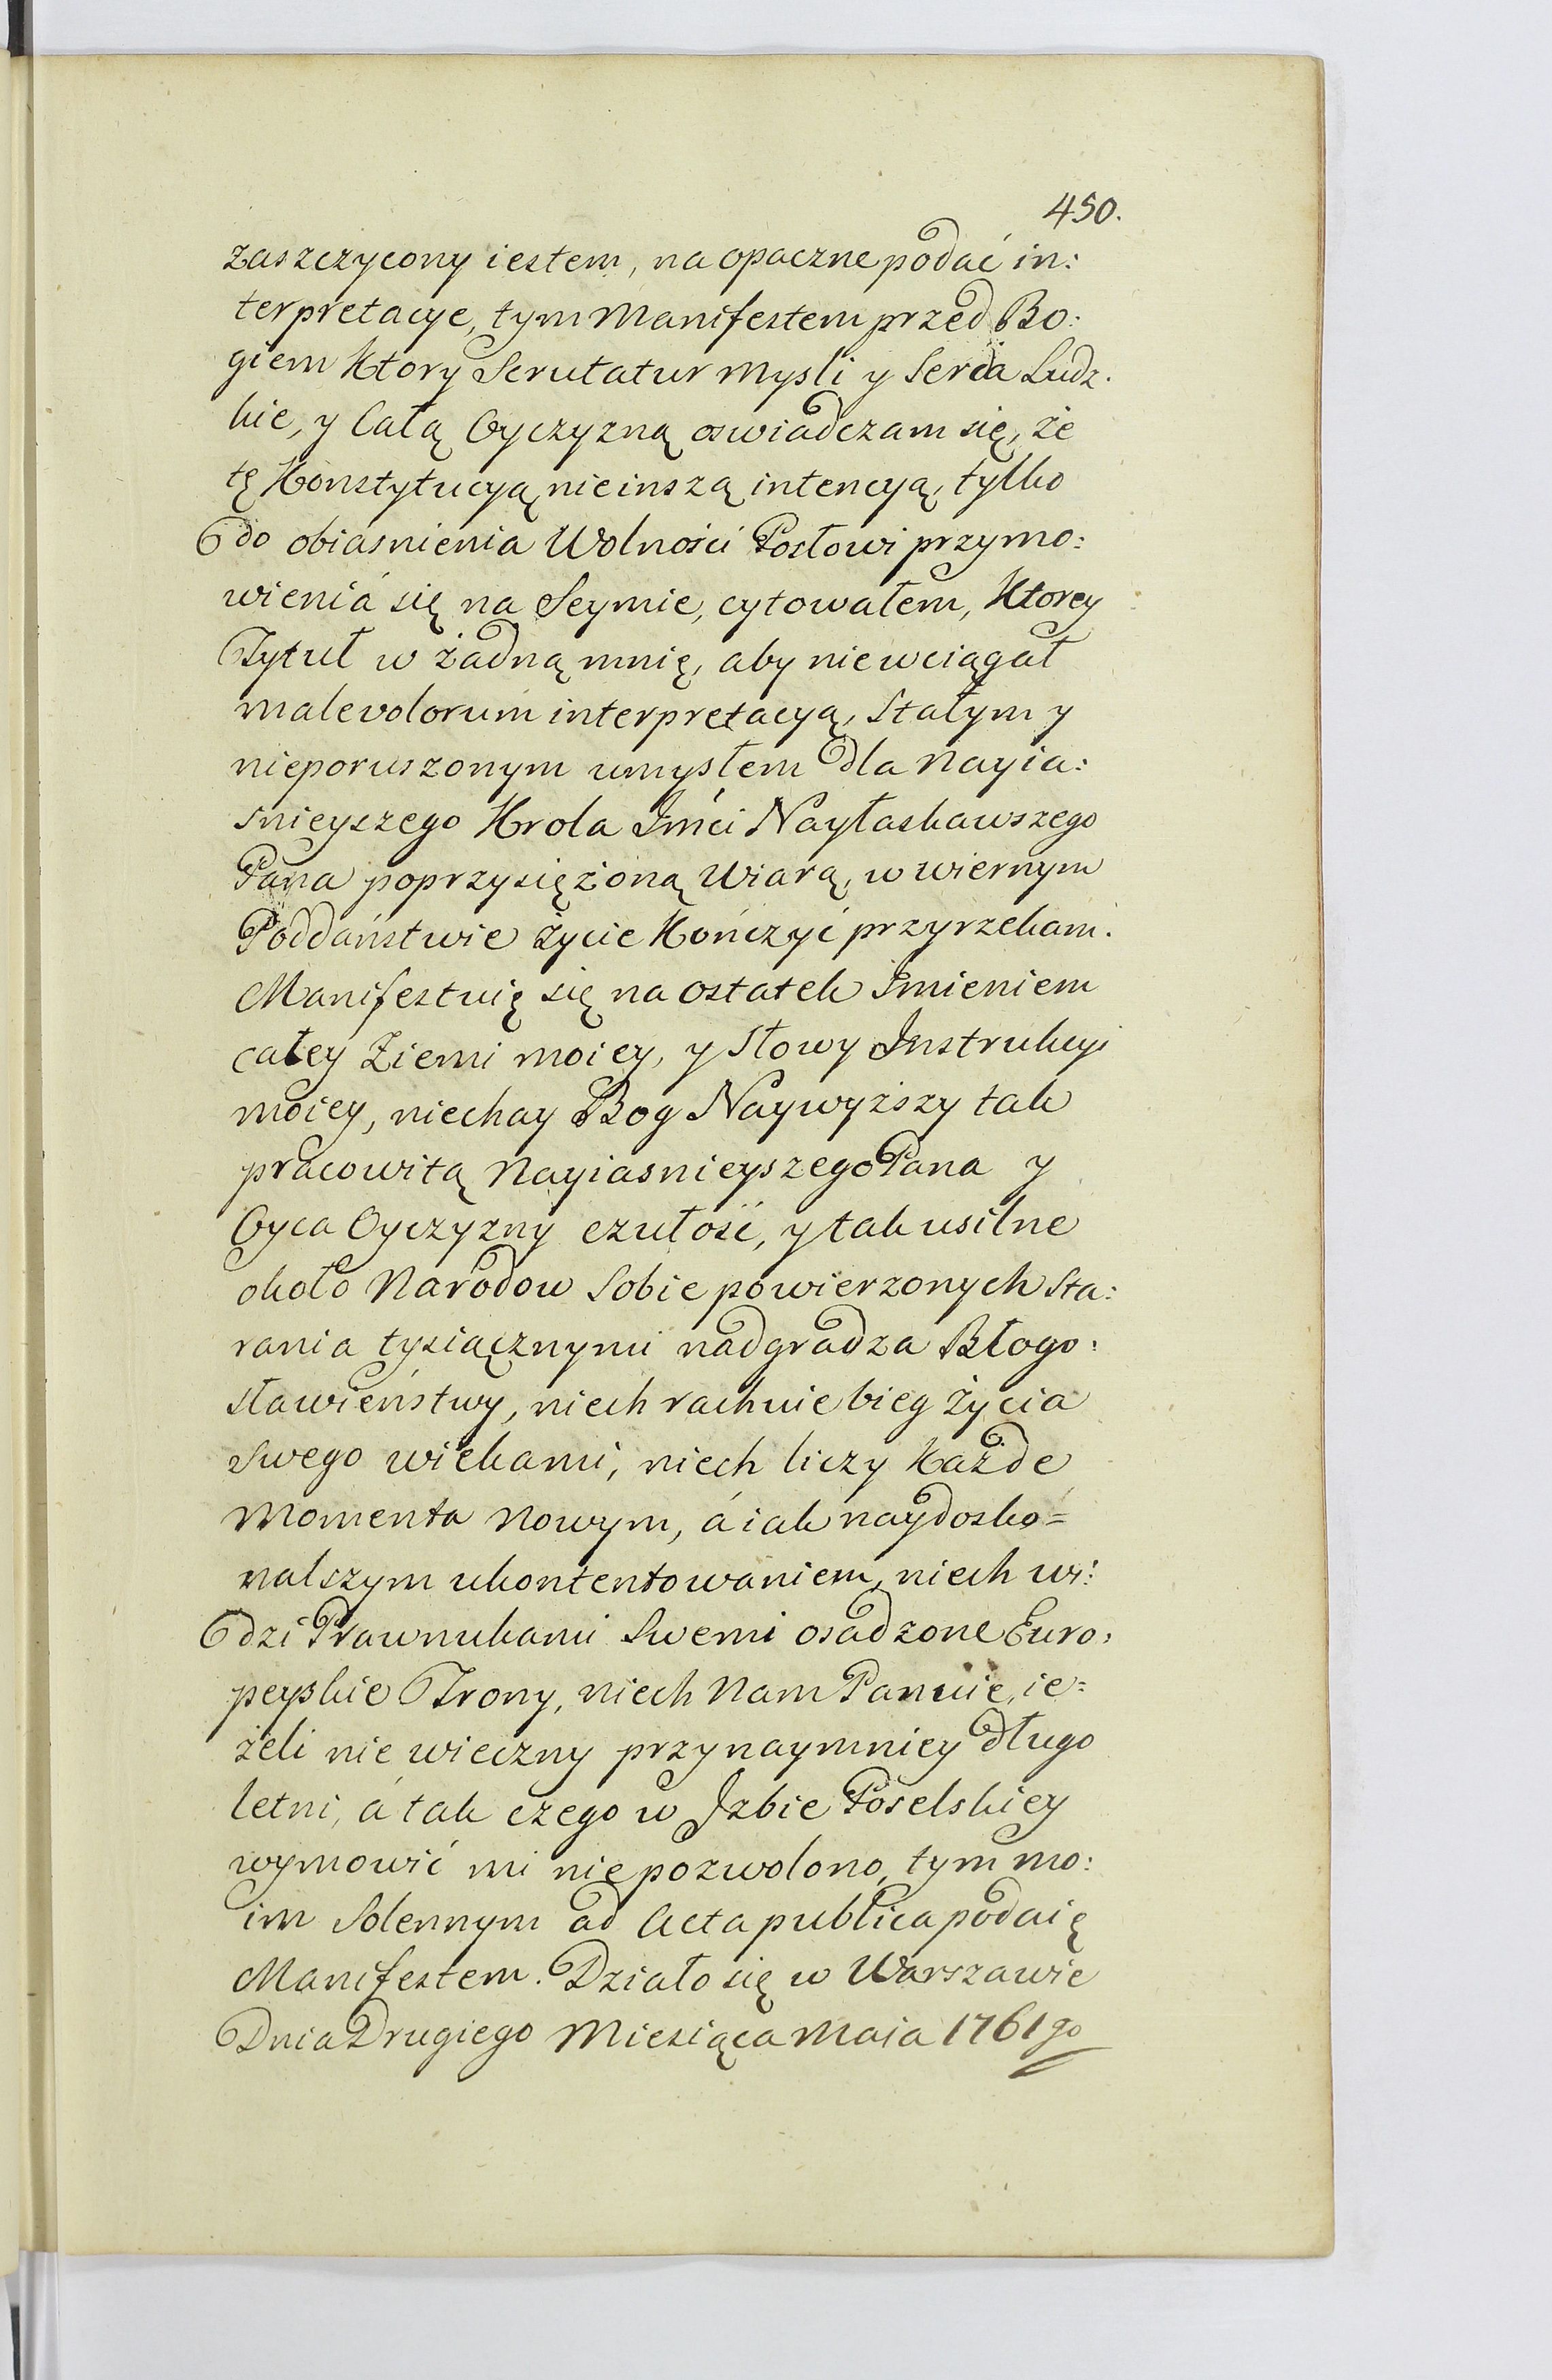 450.
zaszczycony iestem, na opaczne podać in:
terpretacye, tym Manifestem przed Bo:
giem Ktory Scrutatur mysli y Serca Ludz.
kie, y Całą Oyczyzną oswiadczam się, że
tę Konstytucyą nie inszą intencyą, tylko
do obiasnienia Wolności Posłowi przymo:
wieniá się na Seymie, cytowałem, Ktorey
Tytuł w żadną mnię, aby nie wciągał
malevolorum interpretacyą, Stałym y
nieporuszonym umysłem dla Nayia:
snieyszego Krola Jmći Nayłaskawszego
Pana poprzysiężoną Wiarą, w wiernym
Poddaństwie życie Kończyć przyrzekam.
Manifestuię się na ostatek Jmieniem
całey Ziemi moiey, y Słowy Jnstrukcyi
moiey, niechay Bog Naywyższy tak
pracowitą Nayiasnieyszego Pana y
Oyca Oyczyzny czułość, y tak usilne
około Narodow Sobie powierzonych Sta:
rania tysiącznymi nadgradza Błogo:
sławieństwy, niech rachuie bieg życia
Swego wiekami, niech liczy Każde
Momenta Nowym, á iak naydosko=
nalszym ukontentowaniem, niech wi:
dzi Prawnukami Swemi osadzone Euro:
peyskie Trony, niech Nam Panuie, ie=
żeli nie wieczny przynaymniey długo
letni, á tak czego w Jzbie Poselskiey
wymowić mi nie pozwolono, tym mo:
im Solennym ad Acta publica podaię
Manifestem. Działo się w Warszawie
Dnia Drugiego Miesiąca Maia 1761go